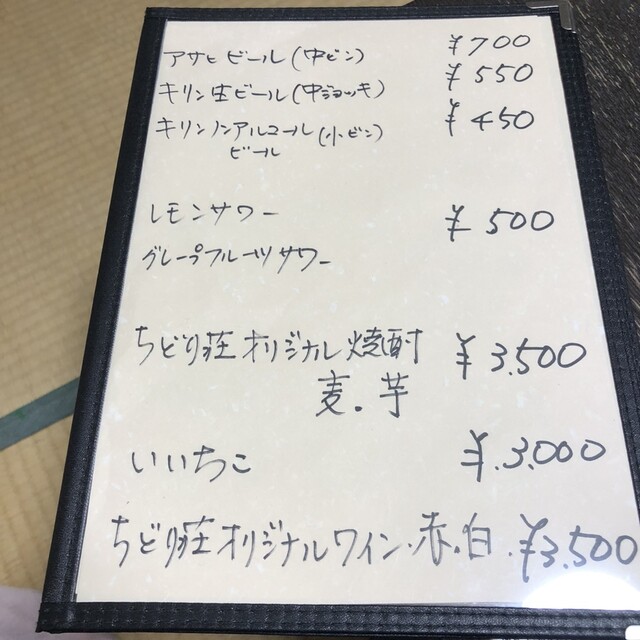 アサヒビール(中ビン) ¥700
キリン生ビール(中ジョッキ) ¥550
キリンノンアルコール(小ビン) ¥450
ビール
レモンサワー ¥500
グレープフルーツサワー
ちどり荘オリジナル焼酎 ¥3,500
麦・芋
いいちこ ¥3,000
ちどり荘オリジナルワイン・赤・白・¥3,500